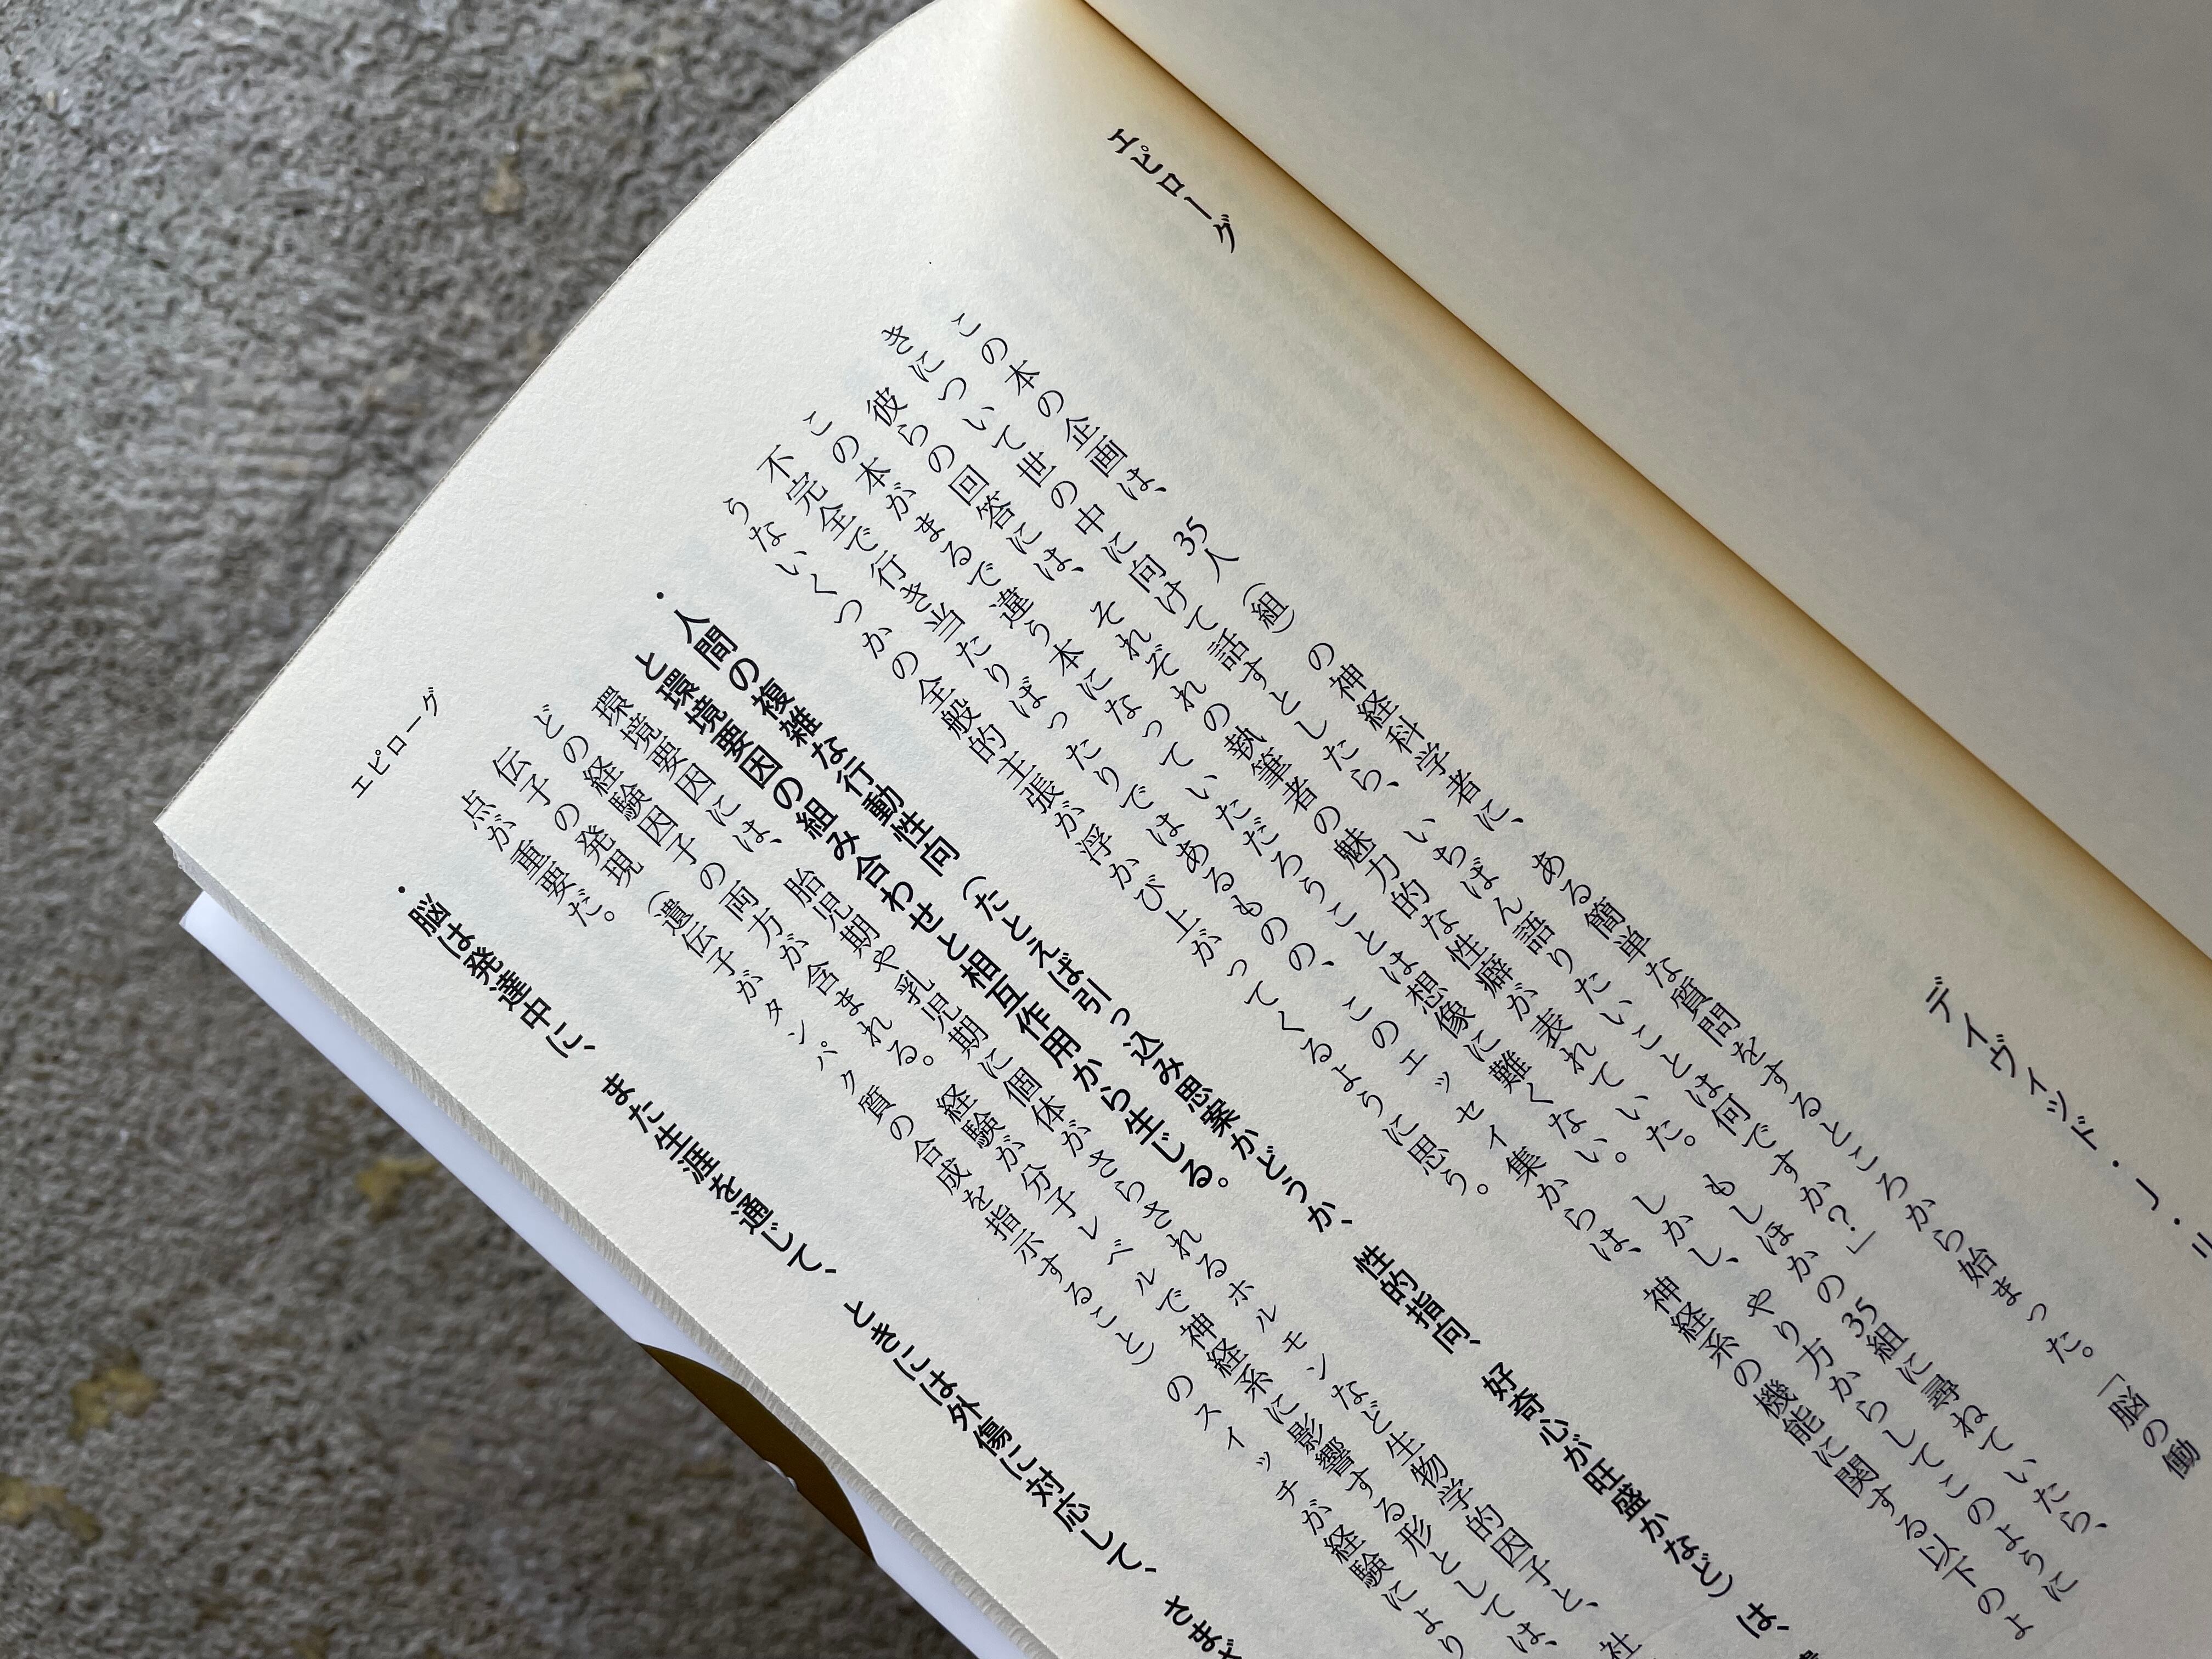 エピローグ
デイヴィッド・J・
この本の企画は、35人（組）の神経科学者に、ある簡単な質問をするところから始まった。「脳の働
きについて世の中に向けて話すとしたら、いちばん語りたいことは何ですか？」
彼らの回答には、それぞれの執筆者の魅力的な性癖が表れていた。もしほかの35組に尋ねていたら、
この本がまるで違う本になっていただろうことは想像に難くない。しかし、やり方からしてこのように
不完全で行き当たりばったりではあるものの、このエッセイ集からは、神経系の機能に関する以下のよ
うないくつかの全般的主張が浮かび上がってくるように思う。
・人間の複雑な行動性向（たとえば引っ込み思案かどうか、性的指向、好奇心が旺盛かなど）は、
と環境要因の組み合わせと相互作用から生じる。
環境要因には、胎児期や乳児期に個体がさらされるホルモンなど生物学的因子と、社
どの経験因子の両方が含まれる。経験が分子レベルで神経系に影響する形としては、
伝子の発現（遺伝子がタンパク質の合成を指示すること）のスイッチが経験により
点が重要だ。
・脳は発達中に、また生涯を通じて、ときには外傷に対応して、さまざ
エピローグ